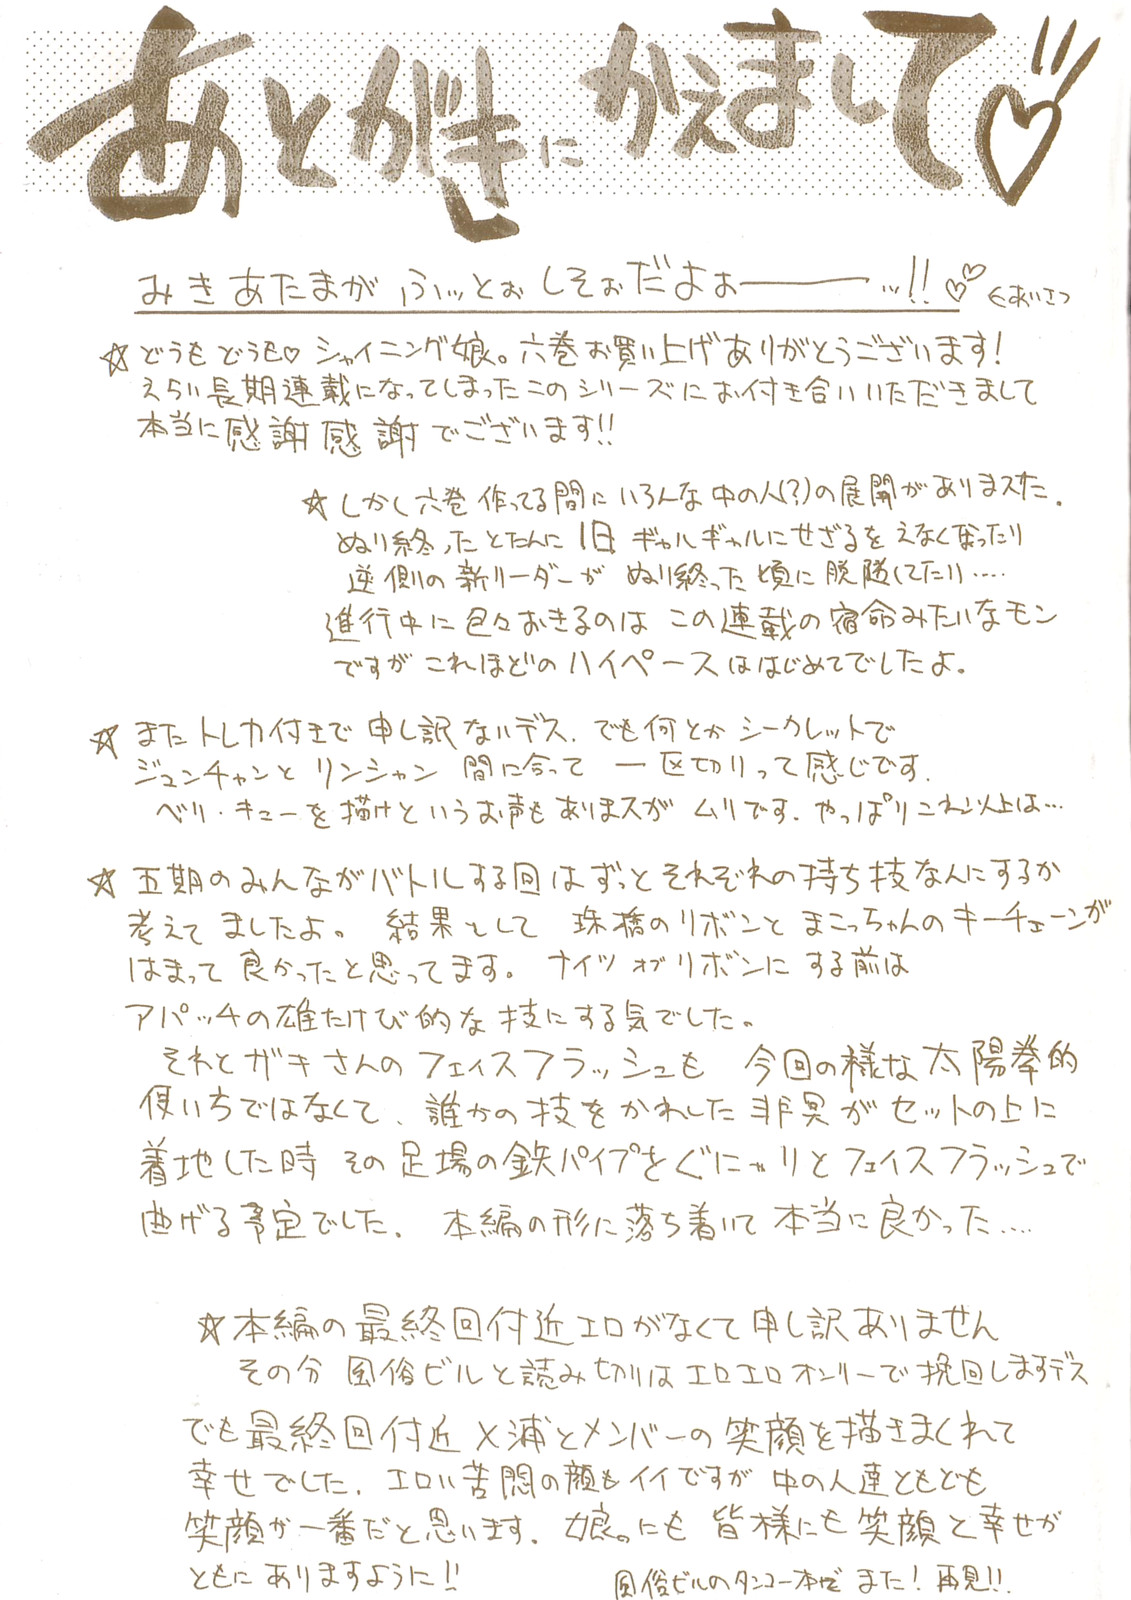 あとがきにかえまして♡
みきあたまが ふぃっとぉ しそぉだよぉ――…!!♡ ←あいさつ
☆どうもどうも♡ シャイニング娘。六巻お買い上げありがとうございます!
えらい長期連載になってしまったこのシリーズにお付き合いいただきまして
本当に感謝感謝でございます!!
☆しかし六巻作ってる間にいろんな中の人(?)の展開がありまスた.
ぬり終ったとたんに1日ギャルギャルにせざるをえなくなったり
逆側の新リーダーが ぬり終った頃に脱隊してたり....
進行中に色々おきるのは この連載の宿命みたいなモン
ですが これほどのハイペースははじめてでしたよ。
☆またトレカ付きで 申し訳ないデス. でも何とか シークレットで
ジュンチャンと リンシャン 間に合って 一区切りって感じです.
ベリ・キューを描けというお声もありまスが ムリです. やっぱりこれ以上は…
☆五期のみんながバトルする回はずっとそれぞれの持ち技なんにするか
考えてましたよ。 結果として 珠橋のリボンと まこっちゃんのキーチェーンが
はまって 良かったと思ってます。 ナイツオブリボンに する前は
アパッチの雄たけび的な 技にする気でした。
それと ガキさんの フェイスフラッシュも 今回の様な 太陽拳的
使いちではなくて、誰かの技をかわした 非冥が セットの上に
着地した時 その足場の鉄パイプをぐにゃりとフェイスフラッシュで
曲げる予定でした. 本編の形に落ち着いて 本当に良かった....
☆本編の最終回付近エロがなくて申し訳ありません
その分 風俗ビルと読み切りはエロエロオンリーで挽回しますデス
でも最終回付近 X浦とメンバーの笑顔を描きまくれて
幸せでした. エロい苦悶の顔もイイですが 中の人達ともども
笑顔が一番だと思います. 娘。にも 皆様にも笑顔と幸せが
ともにありますように!!
風俗ビルのタンコー本で また! 再見!!.